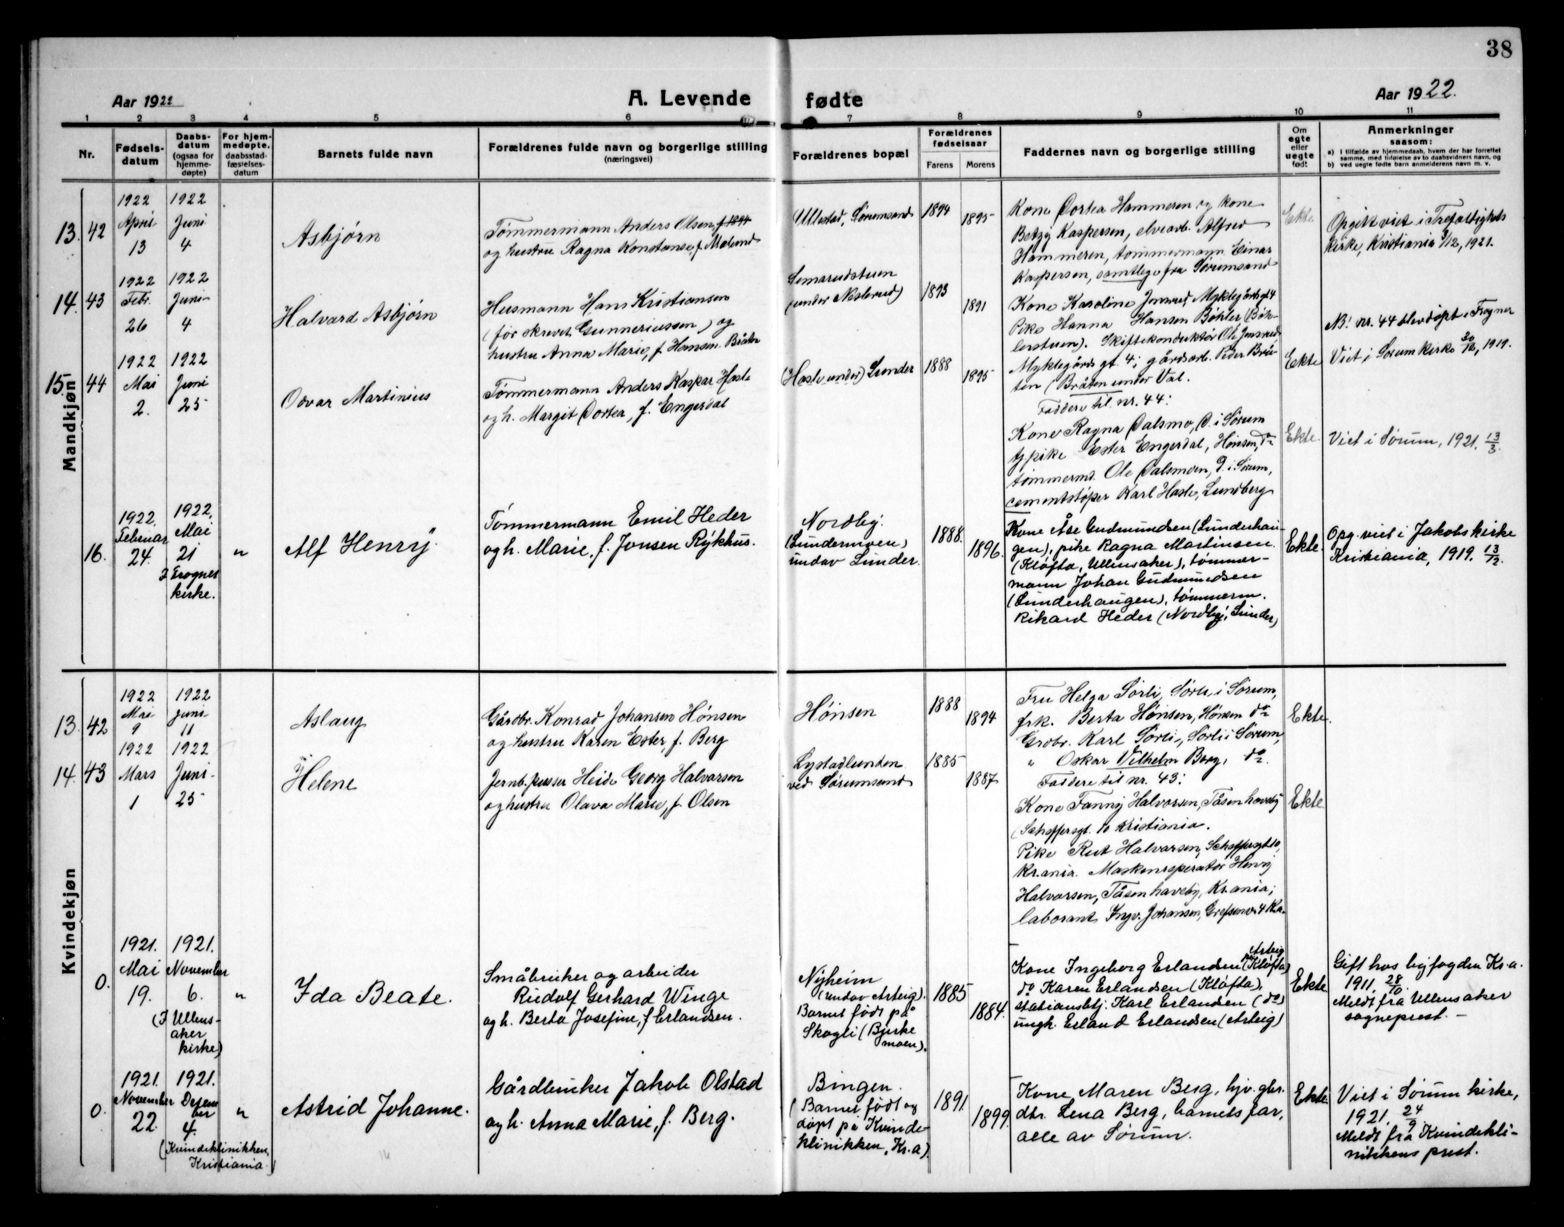 38
Aar 1922
A. Levende
fødte
Aar 1922.
1 2 3 4 5 6 7 8 9 10 11
Nr.
Fødsels-
datum
Daabs-
datum
(ogsaa for
hjemme-
døpte)
For hjem-
medøpte,
daabsstad-
fæstelses-
datum
Barnets fulde navn
Forældrenes fulde navn og borgerlige stilling
(næringsvei)
Forældrenes bopæl
Forældrenes
fødselsaar
Farens
Morens
Faddernes navn og borgerlige stilling
Om
egte
eller
uegte
født
Anmerkninger
saasom:
a) I tilfælde av hjemmedaab, hvem der har forrettet
samme, med tilføielse av to daabsvidners navn, og
b) ved uegte født barn anmelderens navn m. v.
Mandkjøn
13. 42
1922
April
13
1922
Juni
4
Asbjørn
Tømmermann Anders Olsen, f. 1894
og hustru Ragna Konstanse, f. Molund
Ullestad, Sørumsand
1894
1895
Kone Dortea Hammeren og kone
Betzy Kaspersen, elvearb. Alfred
Hammeren, tømmermann Einar
Kaspersen, samtlige fra Sørumsand
Ekte
Opgit viet i Trefoldighets
kirke, Kristiania 3/12, 1921.
14. 43
1922
Febr.
26
1922
Juni
4
Halvard Asbjørn
Husmann Hans Kristiansen
(før skrevet Gunneriussen) og
hustru Anna Marie, f. Hansen
(under Nesterud)
1893
1891
Kone Karoline Jonsrud, Myklegårdsgt 4
Pike Hanna Hansen Bøhler (Bøh-
lerstuen). Skiftekonduktør Ole Jonsrud
Myklegårds gt 4; gårdsarb. Peder Brå-
ten (Bråten under Val.
Ekte
NB! nr. 44 blev døpt i Frogner
Viet i Sørum kirke 20/12, 1919.
15. 44
1922
Mai
2.
1922
Juni
25
Odvar Martinius
Tømmermann Anders Kaspar Hasle
og h. Margit Dortea, f. Engerdal
(Hasle under) Lunder
1888
1895
Faddere til nr. 44:
Kone Ragna Dalsmo, D i Sørum
pike Ester Engerdal, Hønsen, do
tømmerm. Ole Dalsmoen, D. i Sørum,
cementstøper Karl Hasle, Lundberg
Ekte.
Viet i Sørum, 1921. 13/3
16.
1922.
Februar
24.
1922.
Mai
21
I Frogner
kirke.
"
Alf Henry.
Tømmermann Emil Heder
og h. Marie, f. Jonsen Rykhus.
Nordby.
(Lundermoen)
undav Lunder.
1888.
1896.
Kone Åse Gudmundsen (Lunderhau-
gen), pike Ragna Martinsen
(Kløfta, Ullensaker), tømmer-
mann Johan Gudmundsen
(Lunderhaugen), tømmerm.
Rikard Heder (Nordby, Lunder)
Ekte.
Opg. viet i Jakobs kirke
Kristiania, 1919. 13/2.
Kvindekjøn
13 42
1922
Mai
9
1922
Juni
11
Aslaug
Gårdbr. Konrad Johansen Hønsen
og hustru Karen Ester, f. Berg
Hønsen
1888
1894
Fru Helga Sørli, Sørli i Sørum,
frk. Berta Hønsen, Hønsen do
Grdbr. Karl Sørli, Sørli i Sørum,
" Oskar Vilhelm Berg, do.
Ekte.
14 43
1922
Mars
1
1922
Juni
25
Helene
Jernb.pusser Heide Georg Halvorsen
og hustru Olava Marie, f. Olsen
Lystadlunden
ved Sørumsand
1885
1887
Faddere til nr. 43:
Kone Fanny Halvorsen, Tåsen haveby
(Scheffersgt. 10 Kristiania.
Pike Rut Halvorsen, Scheffersgt 10,
Kr.ania. Maskenoperatør Henry
Halvorsen, Tåsen haveby, Kr.ania;
laborant Ingv. Johansen,
Ekte
0.
1921.
Mai
19.
1921.
November
6.
(I Ullens-
aker
kirke)
"
Ida Beate.
Småbruker og arbeider
Rudolf Gerhard Winge
og h. Berta Josefine, f. Erlandsen.
Nyheim
(undav Asteig).
Barnet født på
Skogli (Bjørke
moen).
1885
1884.
Kone Ingeborg Erlandsen (Asteig
(Kløfta)
do Karen Erlandsen (Kløfta),
stationsbtj. Karl Erlandsen (do)
ungk. Erland Erlandsen (Asteig)
Ekte
Gift hos byfogden Kr.a.
1911. 28/10
Meldt fra Ullensaker
sogneprest. -
0.
1921.
November
22.
1921.
Desem
ber
4.
(Kvindeklinikken,
Kristiania.)
"
Astrid Johanne.
Gårdbruker Jakob Olstad
og h. Anna Marie, f. Berg.
Bingen.
(Barnet født og
døpt på Kvinde-
klinikken, Kr.a)
1891.
1899.
Kone Maren Berg, hjv. gbr.
dtr. Lena Berg, barnets far,
alle av Sørum.
Ekte
Viet i Sørum kirke,
1921. 24/9
Meldt fra Kvindekli-
nikkens prest.